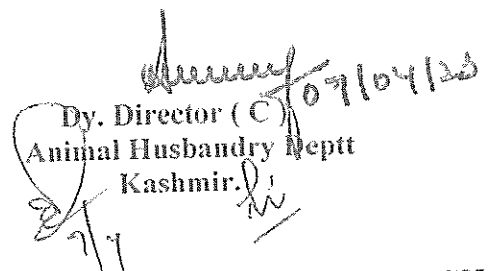 07/04/23
Dy. Director ( C )
Animal Husbandry Deptt
Kashmir.
7/4